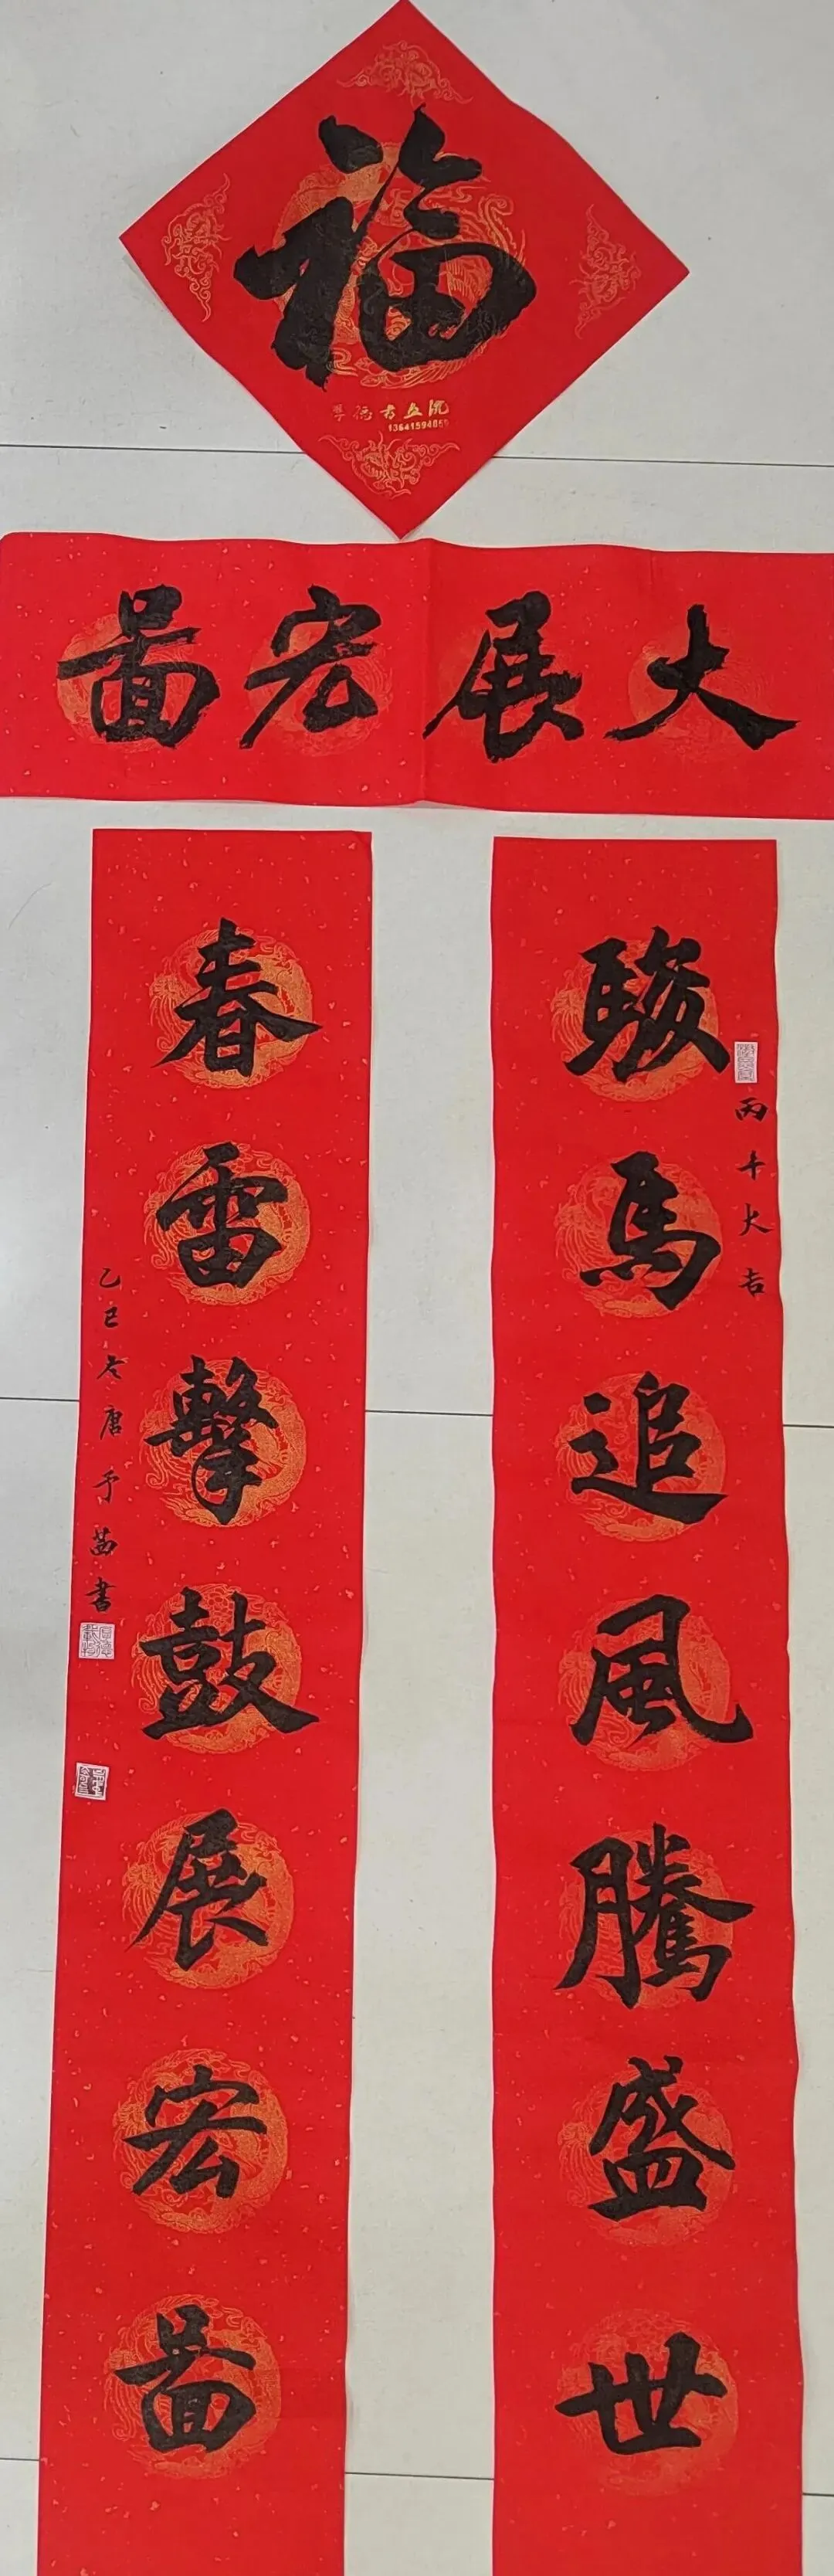 福
厚德书画院
大展宏圖
駿馬追風騰盛世
丙午大吉
春雷擊鼓展宏圖
乙巳冬唐予茜書